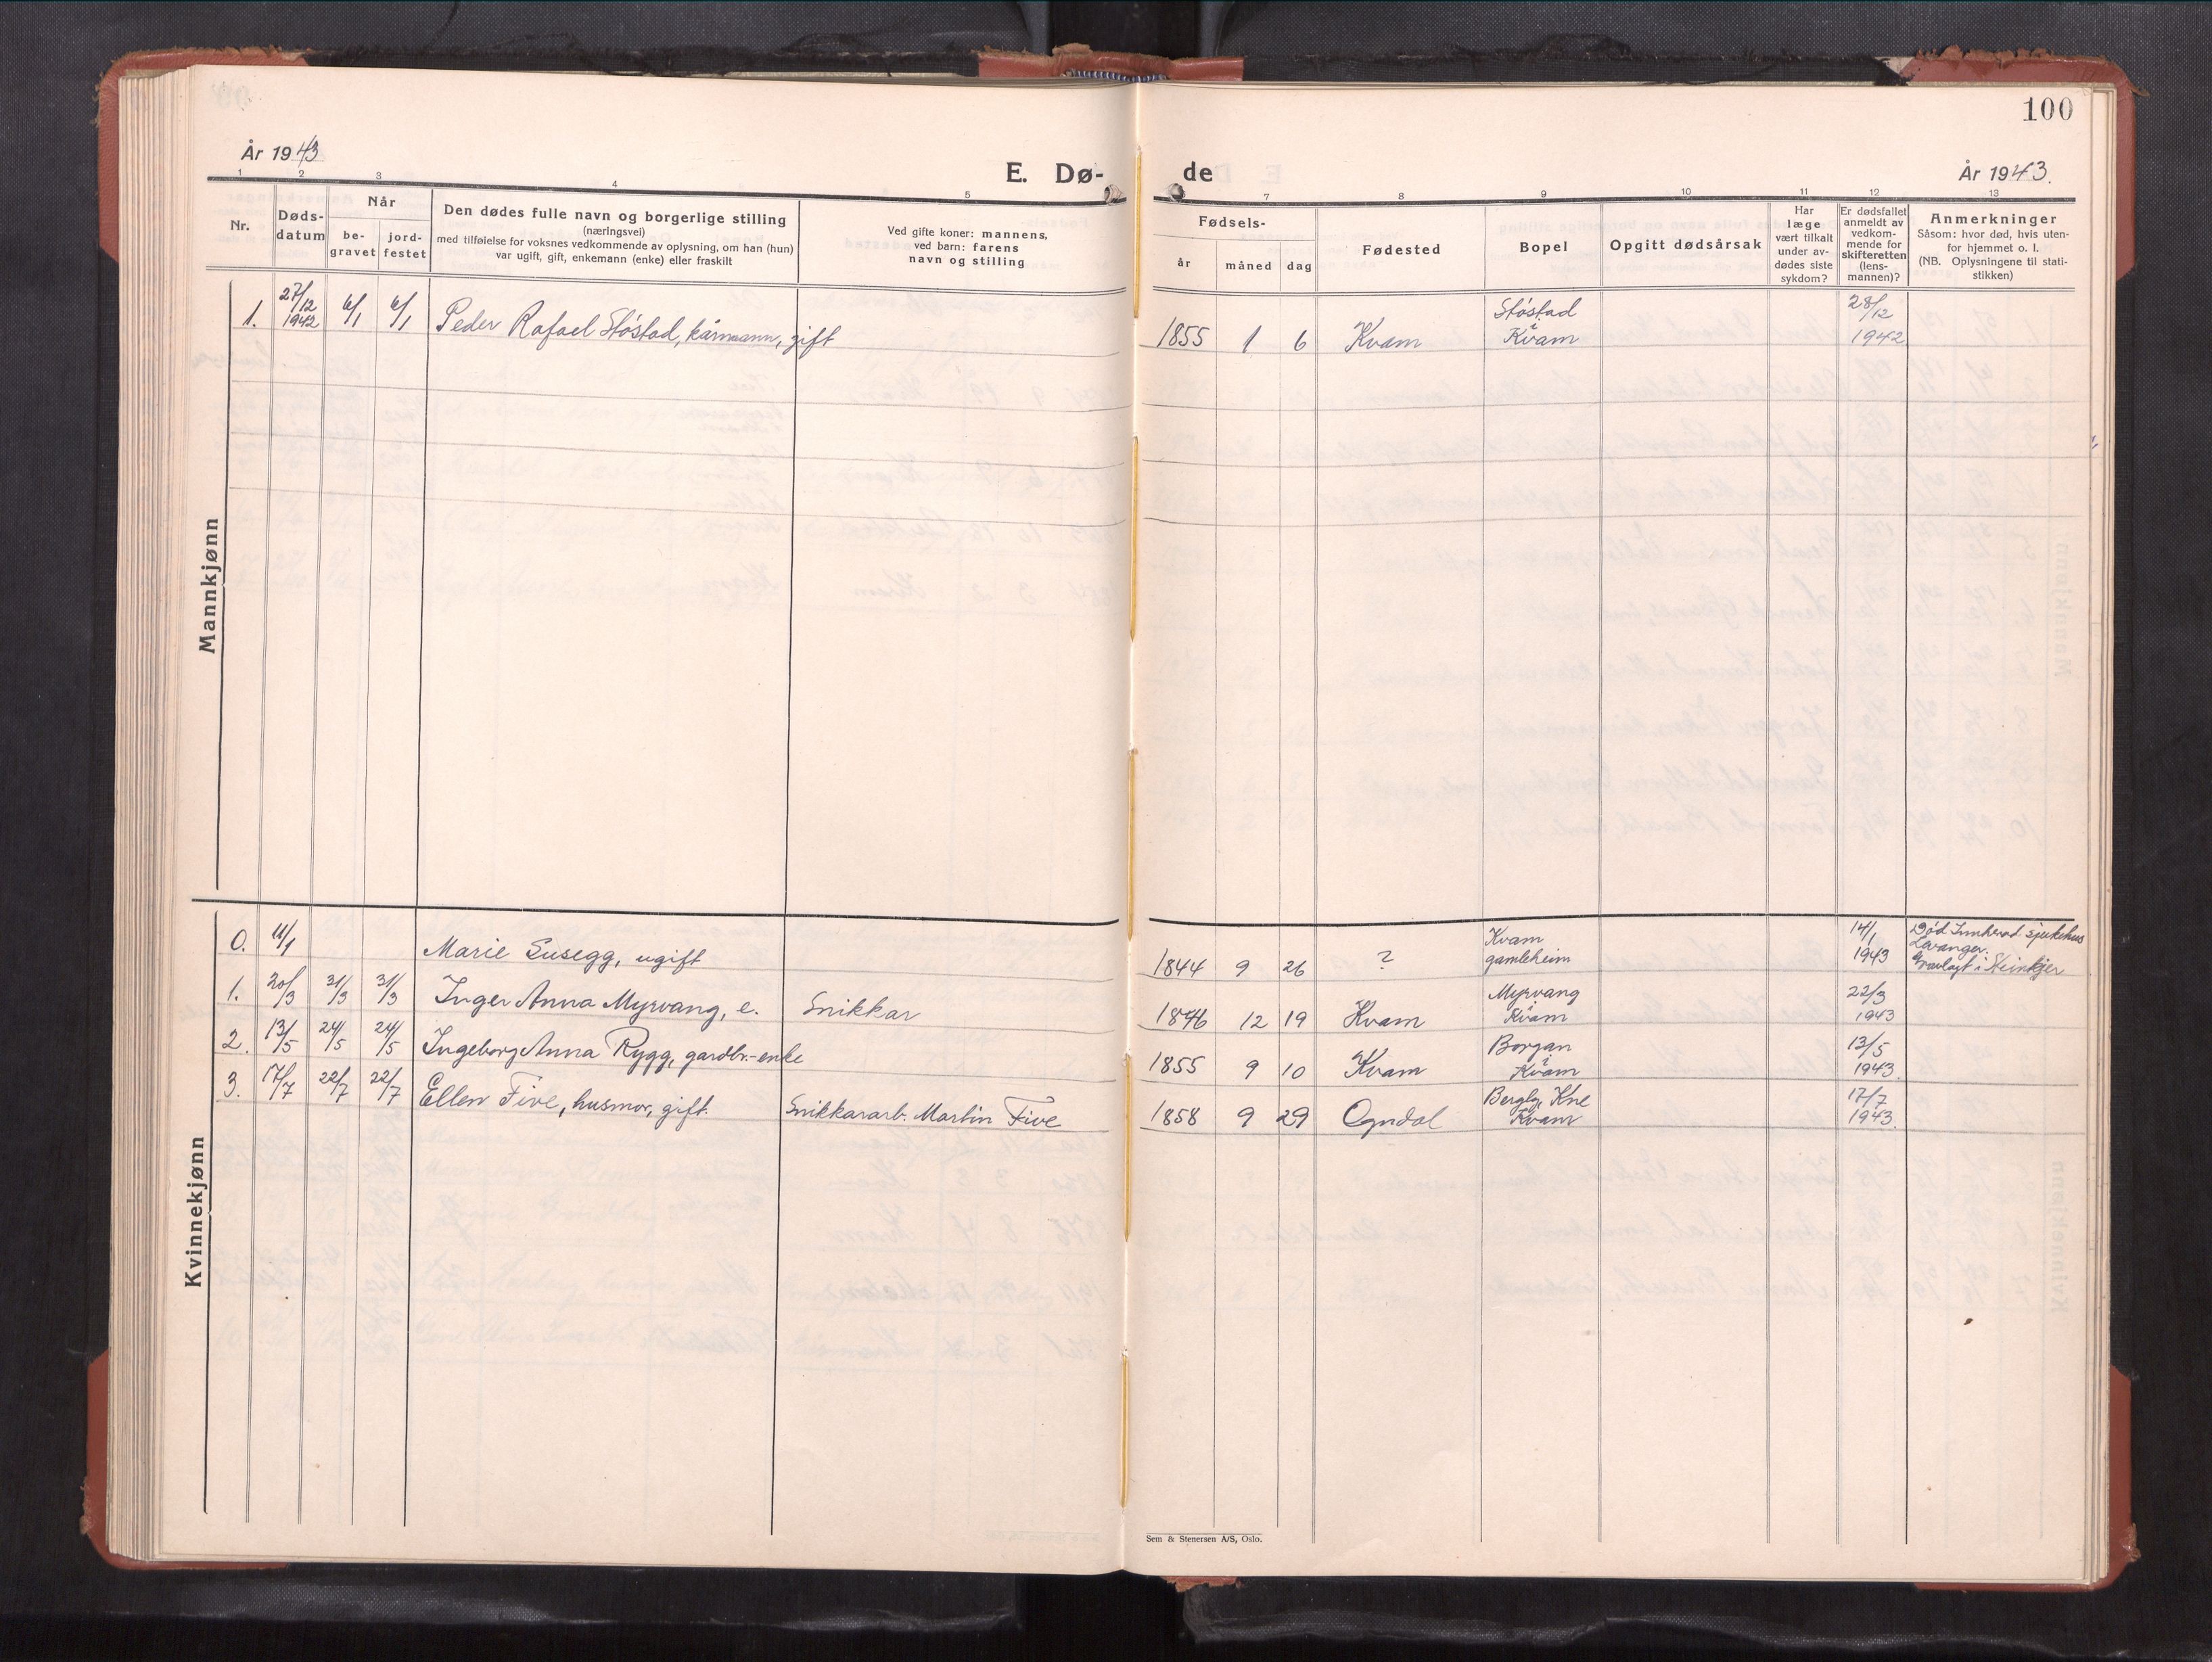 100
År 1943
E. Dø-
de
År 1943.
1 2 3 4 5
7 8 9 10 11 12 13
Nr.
Døds-
datum
Når
be-
gravet
jord-
festet
Den dødes fulle navn og borgerlige stilling
(næringsvei)
med tilføielse for voksnes vedkommende av oplysning, om han (hun)
var ugift, gift, enkemann (enke) eller fraskilt
Ved gifte koner: mannens,
ved barn: farens
navn og stilling
Fødsels-
år måned dag
Fødested
Bopel
Opgitt dødsårsak
Har
læge
vært tilkalt
under av-
dødes siste
sykdom?
Er dødsfallet
anmeldt av
vedkom-
mende for
skifteretten
(lens-
mannen)?
Anmerkninger
Såsom: hvor død, hvis uten-
for hjemmet o. l.
(NB. Oplysningene til stati-
stikken)
Mannkjønn
1. 27/12 1942 6/1 6/1 Peder Rafael Støstad, kårmann, gift 1855 1 6 Kvam Støstad i Kvam 28/12 1942
Kvinnekjønn
0. 11/1 Marie Susegg, ugift 1844 9 26 ? Kvam gamleheim 14/1 1943 Død Innherad sjukehus Levanger. Gravlagt i Steinkjer
1. 20/3 31/3 31/3 Inger Anna Myrvang, e. Snikkar 1846 12 19 Kvam Myrvang i Kvam 22/3 1943
2. 13/5 24/5 24/5 Ingeborg Anna Rygg, gardbr.-enke 1855 9 10 Kvam Borgan i Kvam 13/5 1943.
3. 17/7 22/7 22/7 Ellen Five, husmor, gift. Snikkararb. Martin Five 1858 9 29 Ogndal Bergly, Kne Kvam 17/7 1943.
Sem & Stenersen A/S, Oslo.